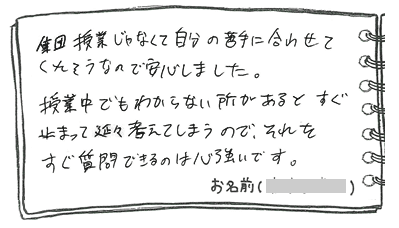 集団授業じゃなくて自分の苦手に合わせて
くれそうなので安心しました。
授業中でもわからない所があるとすぐ
止まって延々考えてしまうので、それを
すぐ質問できるのは心強いです。
お名前( )